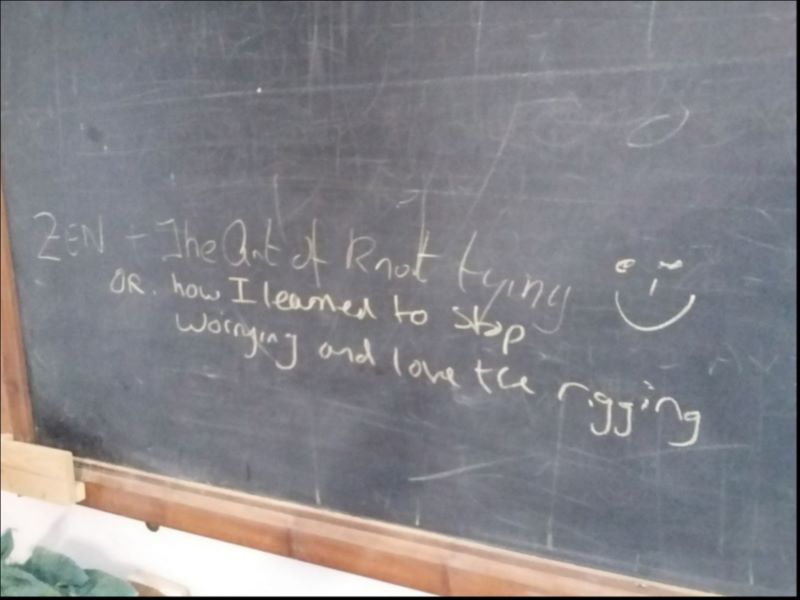 ZEN + The Art of Knot tying
OR. how I learned to stop
worrying and love the rigging